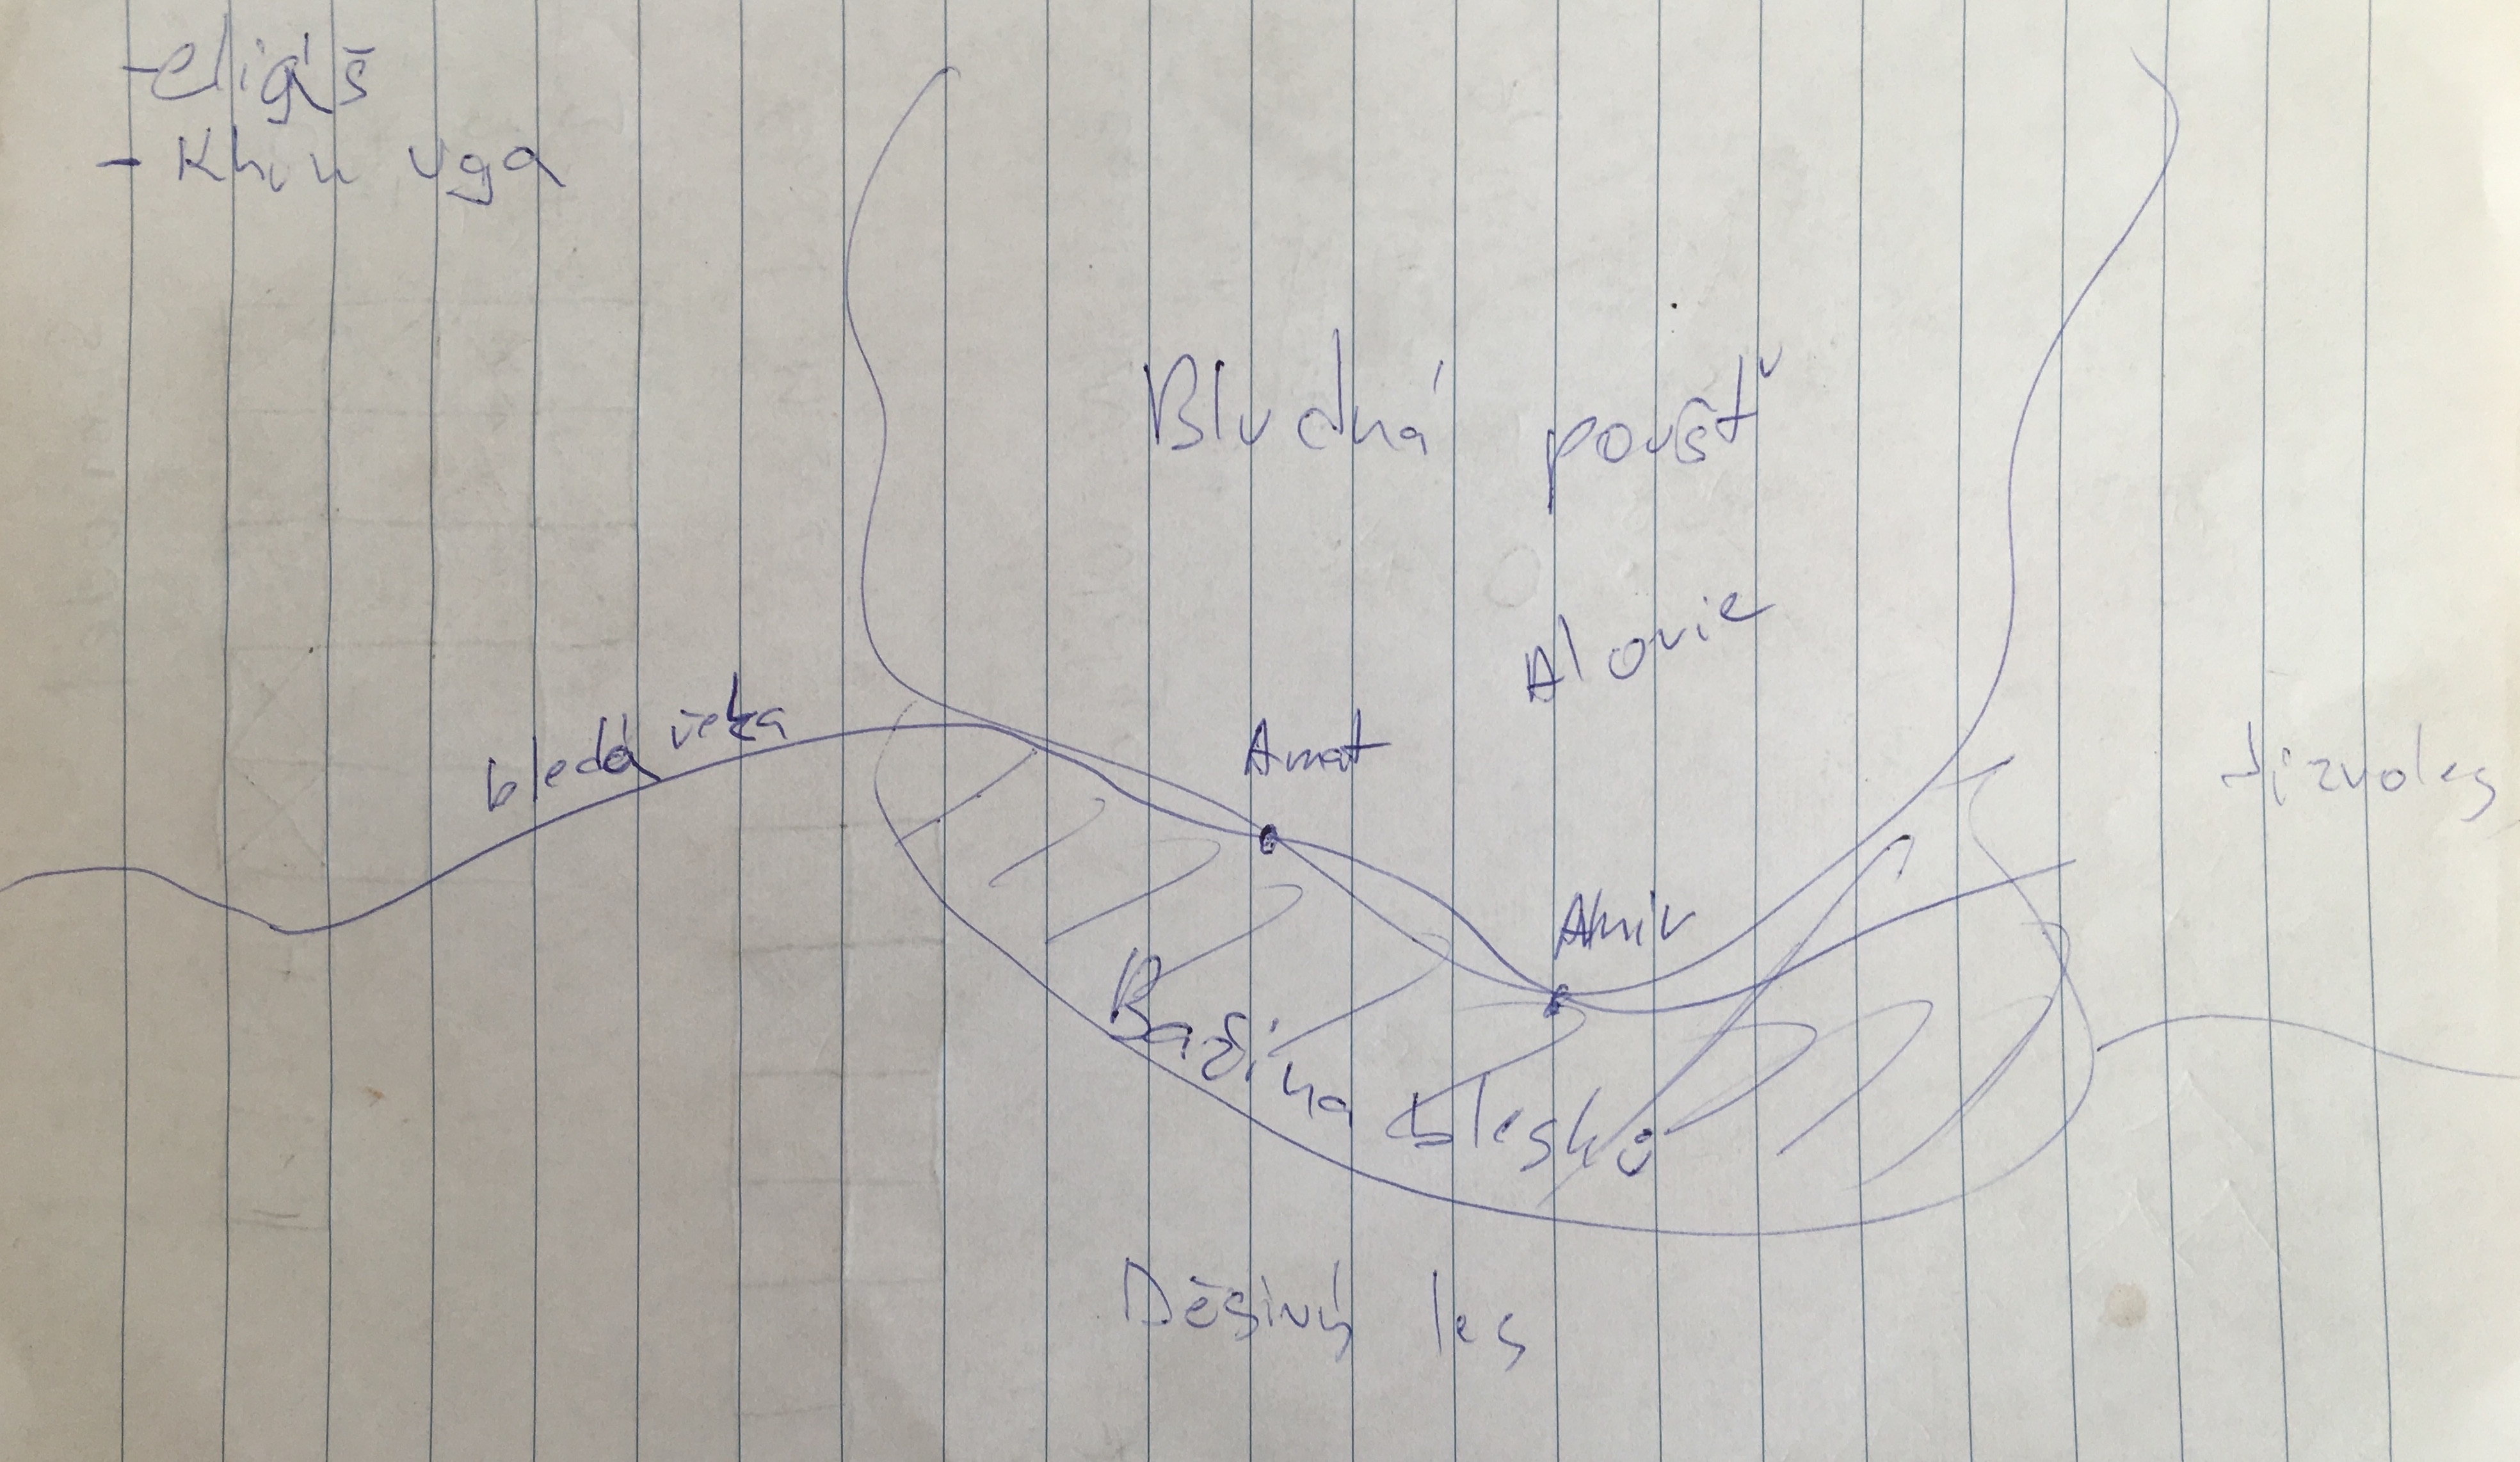 - eliáš
- Khin uga
Bludná poušť
Alovie
bledá řeka
Amat
Jizvoles
Akniv
Bažina blesků
Děsivý les